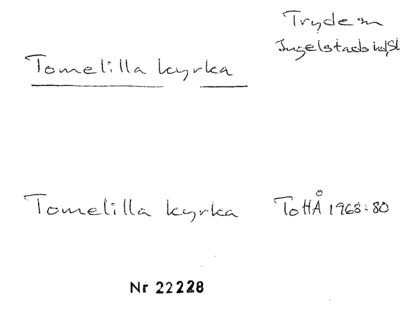 Trydem
Ingelstads hd/Sk
Tomelilla kyrka
Tomelilla kyrka ToHÅ 1968:80
Nr 22228